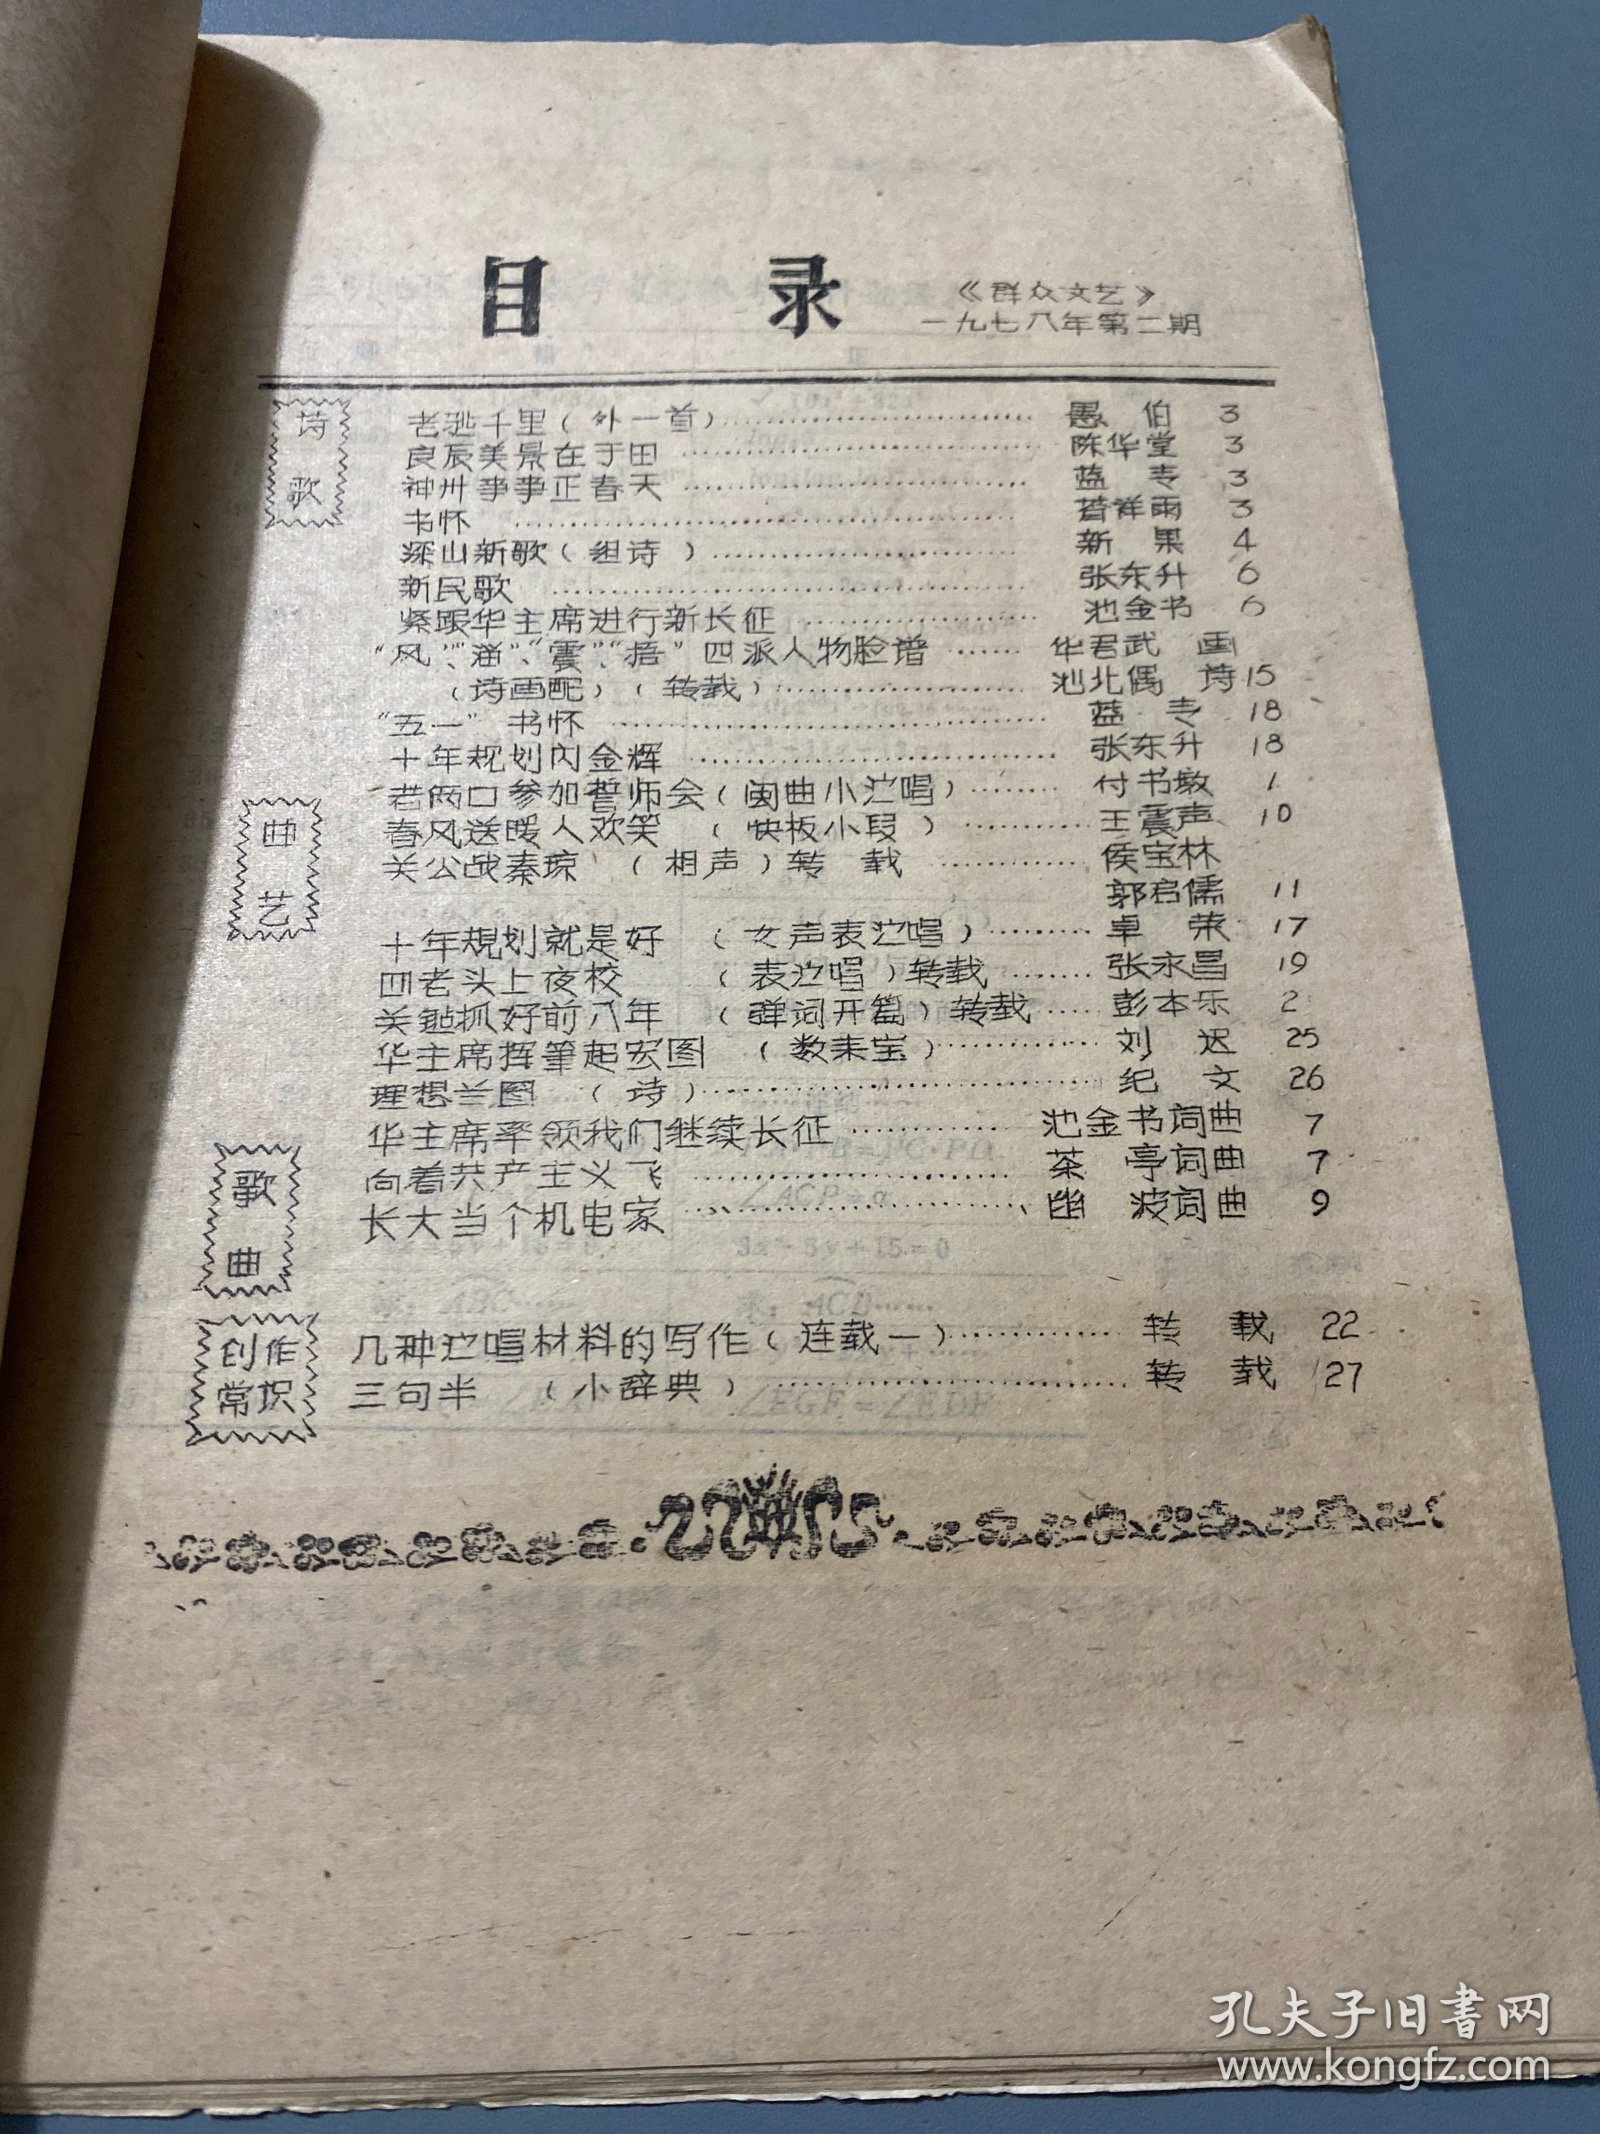 目 录
《群众文艺》
一九七八年第二期
诗歌
老骥千里(外一首) 愚 伯 3
良辰美景在于田 陈华堂 3
神州事事正春天 蓝 专 3
书怀 昔祥雨 3
深山新歌(组诗) 新 果 4
新民歌 张东升 6
紧跟华主席进行新长征 池金书 6
"风"、"溜"、"震"、"捂"四派人物脸谱 华君武 画
(诗画配)(转载) 池北偶 诗 15
"五一"书怀 蓝 专 18
十年规划闪金辉 张东升 18
曲艺
老两口参加誓师会(闽曲小演唱) 付书墩 1
春风送暖人欢笑 (快板小段) 王震声 10
关公战秦琼 (相声)转 载 侯宝林
郭启儒 11
十年规划就是好 (女声表演唱) 卓 荣 17
四老头上夜校 (表演唱)转载 张永昌 19
关键抓好前八年 (弹词开篇)转载 彭本乐 2
华主席挥笔起宏图 (数来宝) 刘 迟 25
理想兰图 (诗) 纪 文 26
歌曲
华主席率领我们继续长征 池金书词曲 7
向着共产主义飞 茶 亭词曲 7
长大当个机电家 幽 波词曲 9
创作
常识
几种演唱材料的写作(连载一) 转 载 22
三句半 (小辞典) 转 载 27
孔夫子旧書网
www.kongfz.com